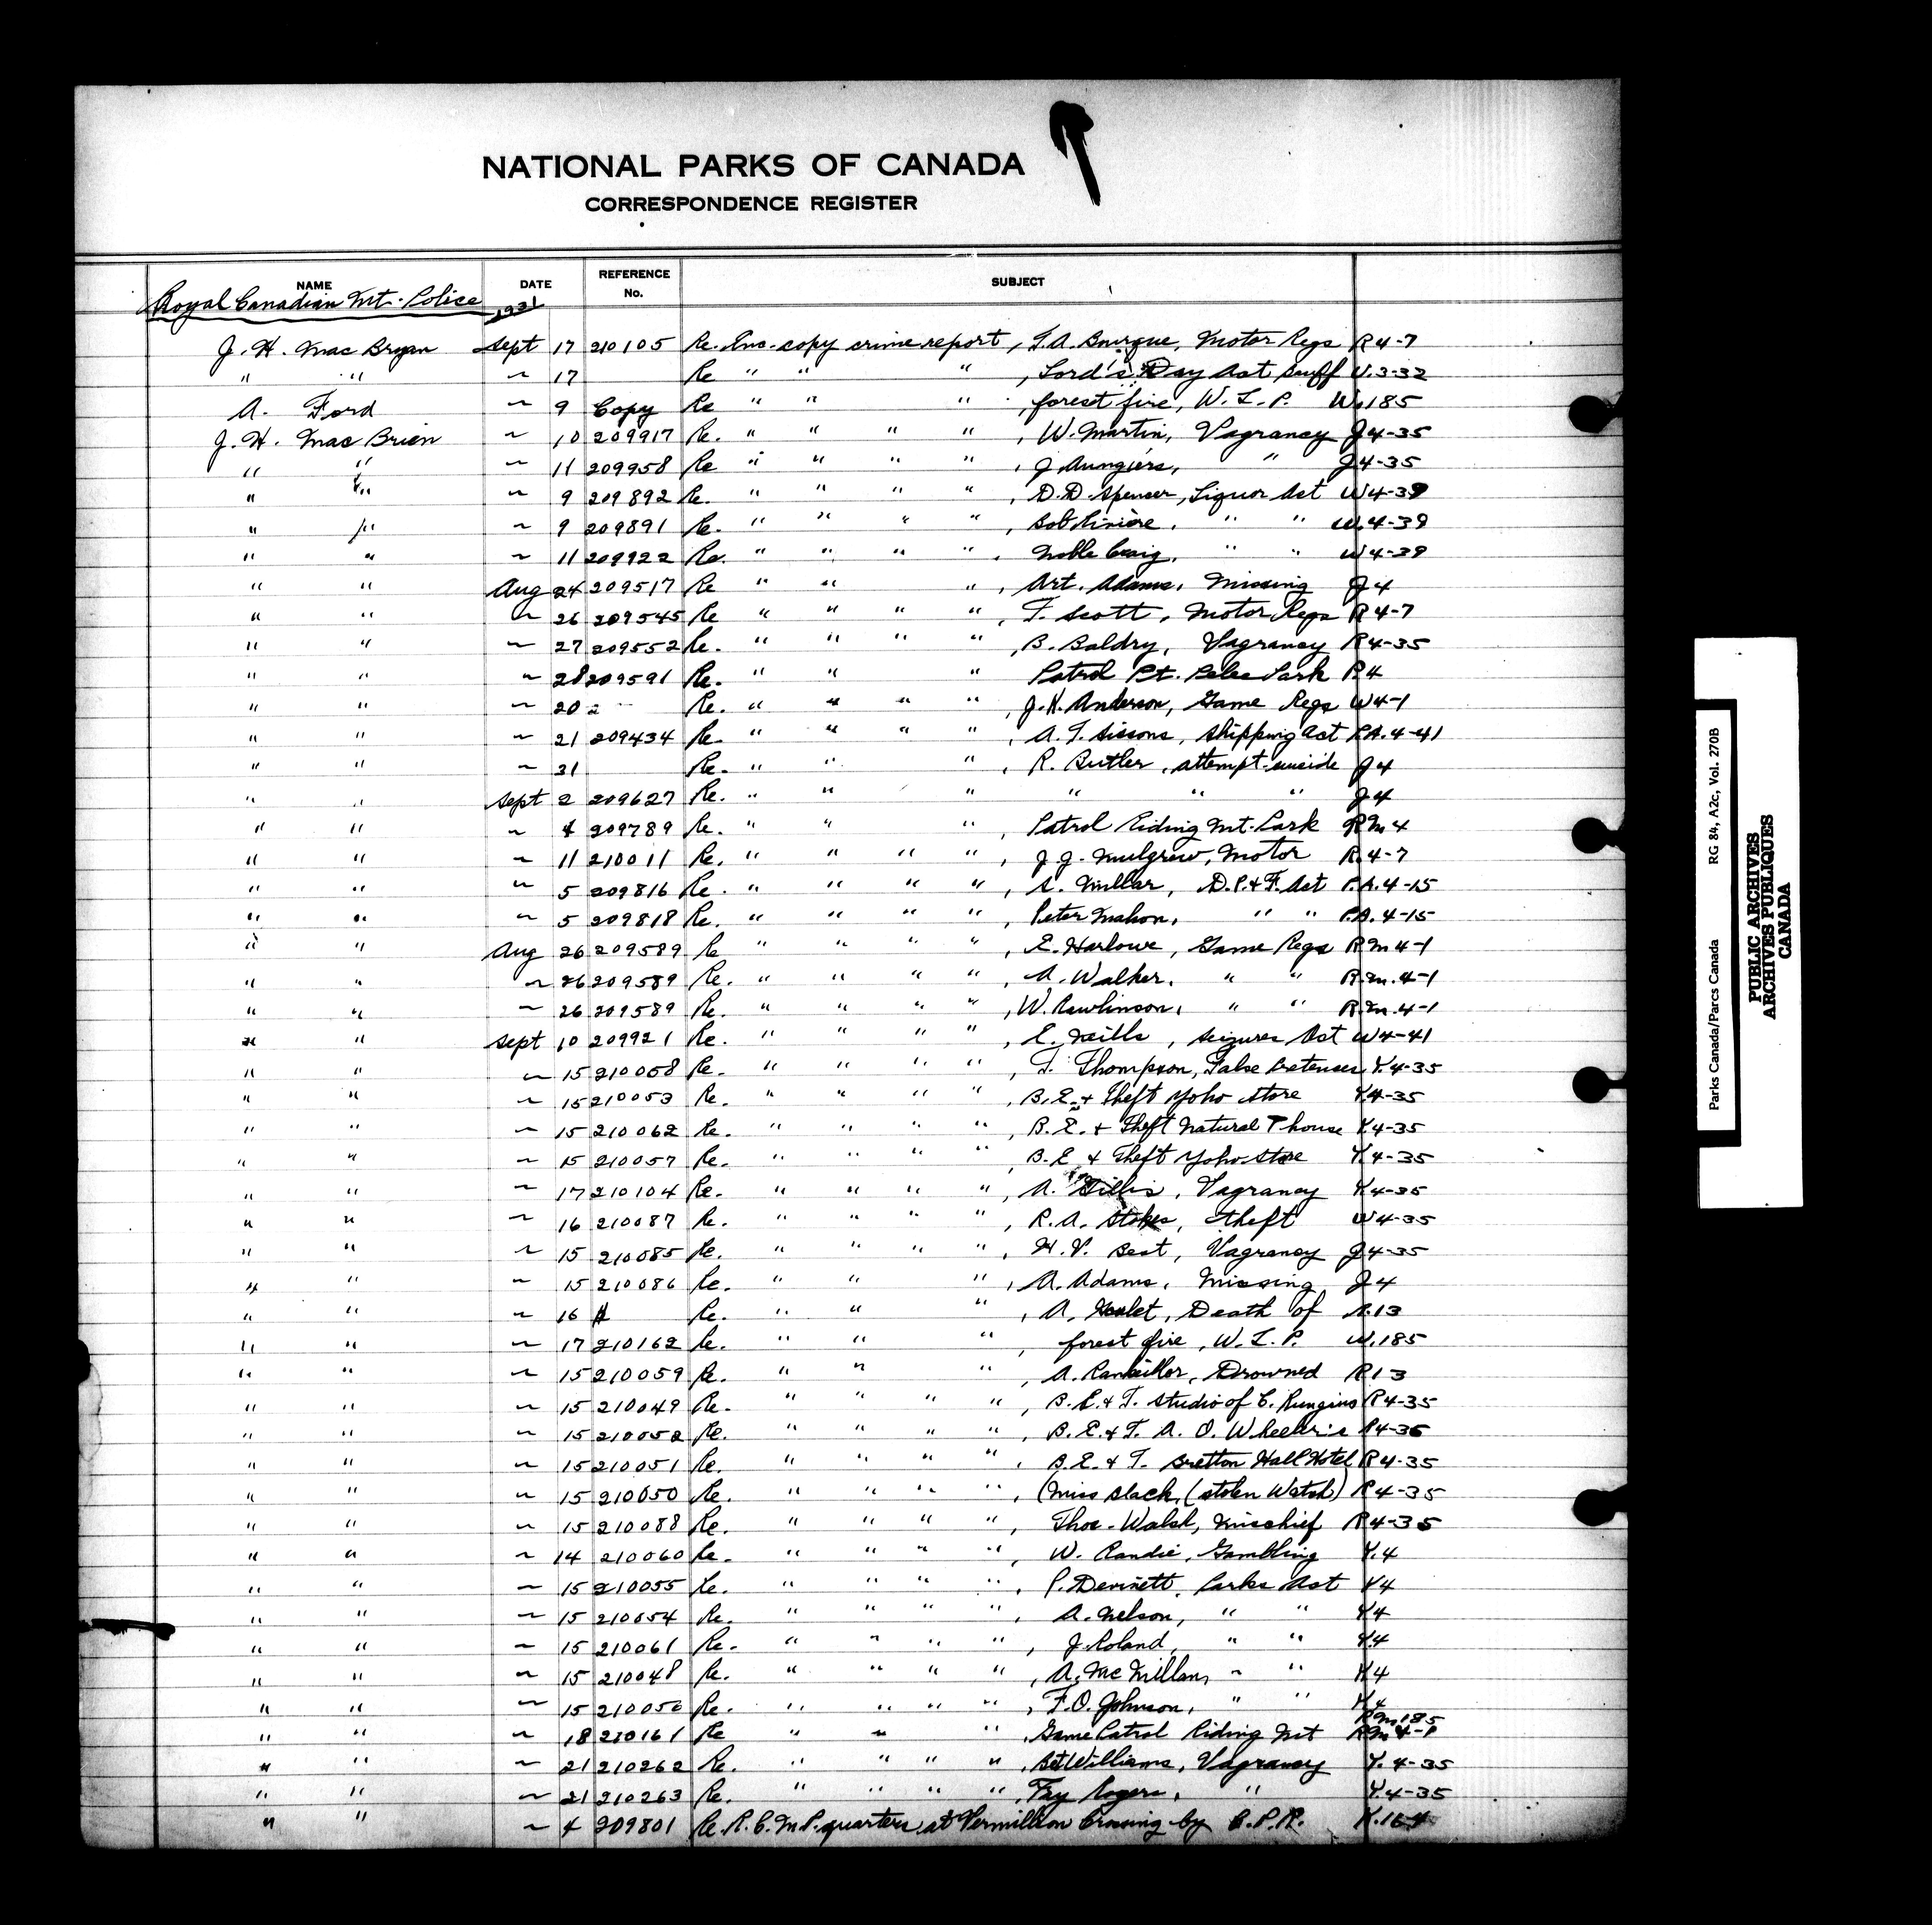 NATIONAL PARKS OF CANADA
CORRESPONDENCE REGISTER
NAME DATE REFERENCE No. SUBJECT
Royal Canadian Mt. Police 1931
J. H. Mac Bryan Sept 17 210105 Re. Enc. copy crime report, T.A. Bourque, Motor Regs R4-7
" " ~ 17 Re " " " , Lord's Day Act Buff U.3-32
A. Ford ~ 9 Copy Re " " " , forest fire, W.L.P. W.185
J. H. Mac Brien ~ 10 209917 Re. " " " " , W. Martin, Vagrancy J4-35
" " ~ 11 209958 Re " " " " , J Aungiers, " J4-35
" " ~ 9 209892 Re. " " " " , D.D. Spencer, Liquor Act W4-39
" " ~ 9 209891 Re. " " " " , Bob Liniere, " " W.4-39
" " ~ 11 209922 Re. " " " " , Noble Craig, " " W4-39
" " Aug 24 209517 Re " " " , Art. Adams, Missing J4
" " ~ 26 209545 Re " " " " , T. Scott, Motor Regs R4-7
" " ~ 27 209552 Re. " " " " , B. Baldry, Vagrancy R4-35
" " ~ 28 209591 Re. " " " Patrol Pt. Pelee Park P.4
" " ~ 20 2 Re. " " " " , J.H. Anderson, Game Regs W4-1
" " ~ 21 209434 Re. " " " " , A. T. Sissons, Shipping Act P.A.4-41
" " ~ 31 Re. " " " , R. Butler, attempt suicide J4
" " Sept 2 209627 Re. " " " " " " J4
" " ~ 4 209789 Re. " " " , Patrol Riding Mt. Park Rm4
" " ~ 11 210011 Re. " " " " , J. J. Mulgrew, Motor R.4-7
" " ~ 5 209816 Re. " " " " , S. Millar, D.P.&F. Act P.A.4-15
" " ~ 5 209818 Re. " " " " , Peter Mahon, " " P.A.4-15
" " Aug 26 209589 Re " " " " , E. Harlowe, Game Regs Rm4-1
" " ~ 26 209589 Re. " " " " , A. Walker, " " R.m.4-1
" " ~ 26 209589 Re. " " " " , W. Rawlinson, " " R.m.4-1
" " Sept 10 209921 Re. " " " " , E. Neills, Seizures Act W4-41
" " ~ 15 210058 Re. " " " " , T. Thompson, False Pretenses Y.4-35
" " ~ 15 210053 Re. " " " " , B.E. + Theft Yoho Store Y.4-35
" " ~ 15 210062 Re. " " " " , B.E. + Theft Natural T house Y.4-35
" " ~ 15 210057 Re. " " " " , B.E + Theft Yoho Store Y.4-35
" " ~ 17 210104 Re. " " " " , A. Gillis, Vagrancy Y.4-35
" " ~ 16 210087 Re. " " " " , R.A. Stokes, theft W4-35
" " ~ 15 210085 Re. " " " " , H.V. Best, Vagrancy J4-35
" " ~ 15 210086 Re. " " " , A. Adams, Missing J4
" " ~ 16 Re. " " " , A. , Death of .13
" " ~ 17 210162 Re. " " " , forest fire, W.L.P. W.185
" " ~ 15 210059 Re. " " " , A. Rankeillor, Drowned R13
" " ~ 15 210049 Re. " " " " , B.E.&T. Studio of C. Rungius R4-35
" " ~ 15 210052 Re. " " " " , B.E.&T. A. O. Wheeler's R4-35
" " ~ 15 210051 Re. " " " " , B.E.&T. Bretton Hall Hotel R4-35
" " ~ 15 210050 Re. " " " " , (Miss Slack, (stolen Watch) R4-35
" " ~ 15 210088 Re. " " " " , Thos. Walsh, Mischief R4-35
" " ~ 14 210060 Re. " " " " , W. Randie, Gambling Y.4
" " ~ 15 210055 Re. " " " " , P. Dennett, Parks Act Y4
" " ~ 15 210054 Re. " " " " , A. Nelson, " " Y4
" " ~ 15 210061 Re. " " " " , J. Roland, " " Y.4
" " ~ 15 210048 Re. " " " " , A. McMillan, ~ " K4
" " ~ 15 210056 Re. " " " " , F.O. Johnson, " " K4
Rm185
" " ~ 18 210161 Re " " " , Game Patrol Riding Mt Rm4-P
" " ~ 21 210262 Re. " " " " , Williams, Vagrancy Y.4-35
" " ~ 21 210263 Re. " " " " , Fay Rogers, " Y.4-35
" " ~ 4 209801 Re. R.C.M.P. quarters at Vermillion Crossing by C.P.R. K.164
Parks Canada/Parcs Canada RG 84, A2c, Vol. 270B
PUBLIC ARCHIVES
ARCHIVES PUBLIQUES
CANADA